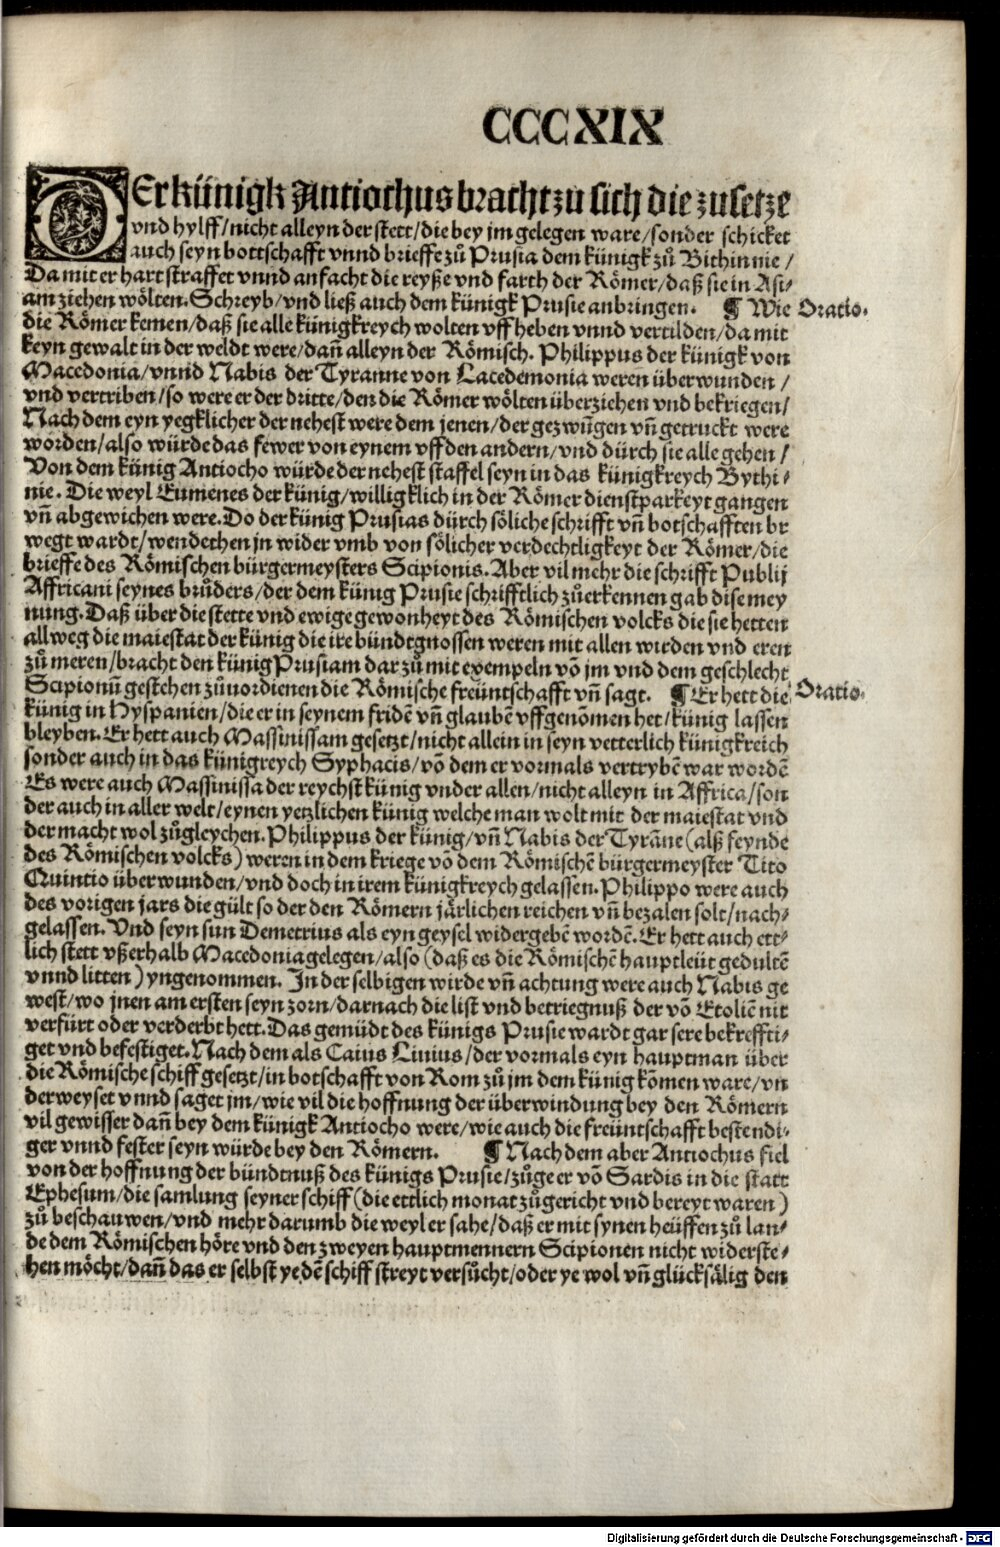 CCCXIX
DEr künigk Antiochus bracht zu sich die zusetze
vnd hylff/nicht alleyn der stett/die bey jm gelegen ware/sonder schicket
auch seyn bottschafft vnnd brieffe zů Prusia dem künigk zů Bithinnie/
Da mit er hart straffet vnnd anfacht die reyße vnd farth der Römer/daß sie in Asi⸗
am ziehen wölten. Schreyb/vnd ließ auch dem künigk Prusie anbringen. ¶ Wie Oratio.
die Römer kemen/daß sie alle künigkreych wolten vff heben vnnd vertilden/da mit
keyn gewalt in der weldt were/dañ alleyn der Römisch. Philippus der künigk von
Macedonia/vnnd Nabis der Tyranne von Lacedemonia weren überwunden/
vnd vertriben/so were er der dritte/den die Römer wölten überziehen vnd bekriegen/
Nach dem eyn yegklicher der nehest were dem jenen/der gezwũgen vñ getruckt were
worden/also würde das fewer von eynem vff den andern/vnd dürch sie alle gehen/
Von dem künig Antiocho würde der nehest staffel seyn in das künigkreych Bythi⸗
nie. Die weyl Eumenes der künig/willigklich in der Römer dienstparkeyt gangen
vñ abgewichen were. Do der künig Prusias dürch söliche schrifft vñ botschafften br
wegt wardt/wendethen jn wider vmb von sölicher verdechtligkeyt der Römer/die
brieffe des Römischen bürgermeysters Scipionis. Aber vil mehr die schrifft Publij
Affricani seynes brůders/der dem künig Prusie schrifftlich zůerkennen gab dise mey
nung. Daß über die stette vnd ewige gewonheyt des Römischen volcks die sie hetten
allweg die maiestat der künig die ire bündtgnossen weren mit allen wirden vnd eren
zů meren/bracht den künig Prusiam dar zů mit exempeln võ jm vnd dem geschlecht
Scipionũ gestehen zůuordienen die Römische freüntschafft vñ sagt. ¶ Er hett die Oratio.
künig in Hyspanien/die er in seynem fridẽ vñ glaubẽ vffgenõmen het/künig lassen
bleyben. Er hett auch Massinissam gesetzt/nicht allein in seyn vetterlich künigkreich
sonder auch in das künigreych Syphacis/võ dem er vormals vertrybẽ war wordẽ
Es were auch Massinissa der reychst künig vnder allen/nicht alleyn in Affrica/son
der auch in aller welt/eynen yetzlichen künig welche man wolt mit der maiestat vnd
der macht wol zůgleychen. Philippus der künig/vñ Nabis der Tyrãne (alß feynde
des Römischen volcks) weren in dem kriege võ dem Römischẽ bürgermeyster Tito
Quintio überwunden/vnd doch in irem künigkreych gelassen. Philippo were auch
des vorigen jars die gült so der den Römern järlichen reichen vñ bezalen solt/nach⸗
gelassen. Vnd seyn sun Demetrius als eyn geysel widergebẽ wordẽ. Er hett auch ett⸗
lich stett vßerhalb Macedonia gelegen/also (daß es die Römischẽ hauptleüt gedultẽ
vnnd litten) yngenommen. In der selbigen wirde vñ achtung were auch Nabis ge
west/wo jnen am ersten seyn zorn/darnach die list vnd betriegnuß der võ Etoliẽ nit
verfürt oder verderbt hett. Das gemüdt des künigs Prusie wardt gar sere bekreffti⸗
get vnd befestiget. Nach dem als Caius Liuius/der vormals eyn hauptman über
die Römische schiff gesetzt/in botschafft von Rom zů jm dem künig kõmen ware/vn
derweyset vnnd saget jm/wie vil die hoffnung der überwindung bey den Römern
vil gewisser dañ bey dem künigk Antiocho were/wie auch die freüntschafft bestendi⸗
ger vnnd fester seyn würde bey den Römern. ¶ Nach dem aber Antiochus fiel
von der hoffnung der bündtnuß des künigs Prusie/zůge er võ Sardis in die statt
Ephesum/die samlung seyner schiff (die ettlich monat zůgericht vnd bereyt waren)
zů beschauwen/vnd mehr darumb die weyl er sahe/daß er mit synen heüffen zů lan⸗
de dem Römischen höre vnd den zweyen hauptmennern Scipionen nicht widerste⸗
hen möcht/dañ das er selbst ye dẽ schiff streyt versůcht/oder ye wol vñ glücksälig den
Digitalisierung gefördert durch die Deutsche Forschungsgemeinschaft - DFG